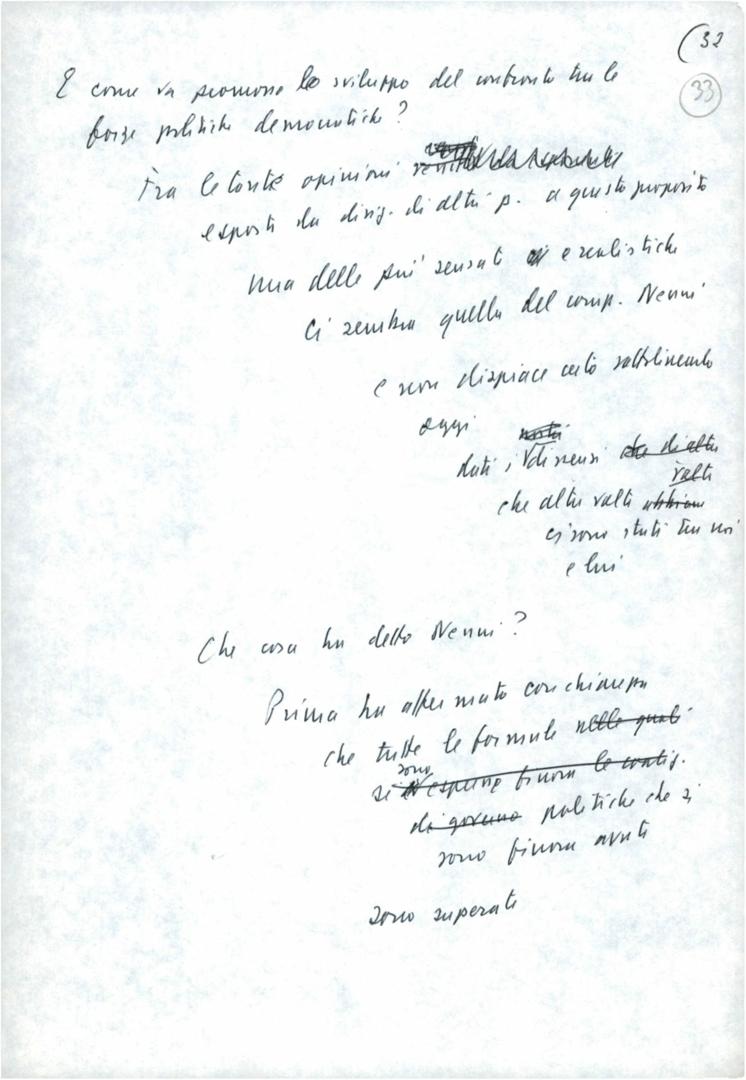 (32
33
E come va promosso lo sviluppo del confronto tra le
forze politiche democratiche?
Fra le tante opinioni
esposti da dirig. di altri p. a questo proposito
una delle più sensati e realistiche
ci sembra quella del comp. Nenni
e non dispiace certo sottolinearlo
oggi
dati i dissensi che di altri
volti
che altre volti abbiam
ci sono stati tra noi
e lui
Che cosa ha detto Nenni?
Prima ha affermato con chiarezza
che tutte le formule nelle quali
sono
si espresse finora le coaliz.
di governo politiche che si
sono finora avuti
sono superati